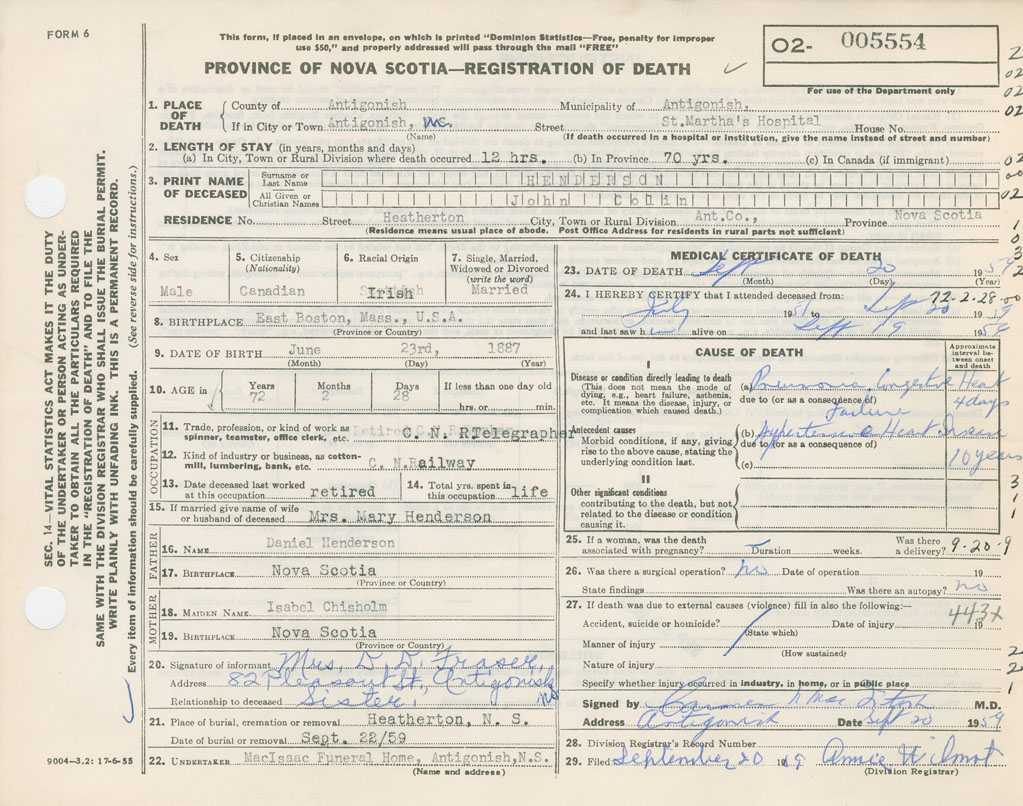 FORM 6
This form, if placed in an envelope, on which is printed "Dominion Statistics—Free, penalty for improper
use $50," and properly addressed will pass through the mail "FREE"
PROVINCE OF NOVA SCOTIA—REGISTRATION OF DEATH
02- 005554
For use of the Department only
SEC. 14—VITAL STATISTICS ACT MAKES IT THE DUTY
OF THE UNDERTAKER OR PERSON ACTING AS UNDER-
TAKER TO OBTAIN ALL THE PARTICULARS REQUIRED
IN THE "REGISTRATION OF DEATH" AND TO FILE THE
SAME WITH THE DIVISION REGISTRAR WHO SHALL ISSUE THE BURIAL PERMIT.
WRITE PLAINLY WITH UNFADING INK. THIS IS A PERMANENT RECORD.
Every item of information should be carefully supplied. (See reverse side for instructions.)
1. PLACE OF DEATH County of Antigonish Municipality of Antigonish,
If in City or Town Antigonish, N.S. Street St.Martha's Hospital House No.
(Name) (If death occurred in a hospital or institution, give the name instead of street and number)
2. LENGTH OF STAY (in years, months and days)
(a) In City, Town or Rural Division where death occurred 12 hrs. (b) In Province 70 yrs. (c) In Canada (if immigrant)
3. PRINT NAME OF DECEASED Surname or Last Name HENDERSON
All Given or Christian Names John Colin
RESIDENCE No. Street Heatherton City, Town or Rural Division Ant.Co., Province Nova Scotia
(Residence means usual place of abode. Post Office Address for residents in rural parts not sufficient)
4. Sex Male
5. Citizenship (Nationality) Canadian
6. Racial Origin Irish
7. Single, Married, Widowed or Divorced (write the word) Married
8. BIRTHPLACE East Boston, Mass., U.S.A.
(Province or Country)
9. DATE OF BIRTH June 23rd, 1887
(Month) (Day) (Year)
10. AGE in Years 72 Months 2 Days 28 If less than one day old hrs. or min.
OCCUPATION
11. Trade, profession, or kind of work as spinner, teamster, office clerk, etc. C. N. R.Telegrapher
12. Kind of industry or business, as cotton-mill, lumbering, bank, etc. C. N.Railway
13. Date deceased last worked at this occupation retired
14. Total yrs. spent in this occupation life
15. If married give name of wife or husband of deceased Mrs. Mary Henderson
FATHER
16. NAME Daniel Henderson
17. BIRTHPLACE Nova Scotia
(Province or Country)
MOTHER
18. MAIDEN NAME. Isabel Chisholm
19. BIRTHPLACE Nova Scotia
(Province or Country)
20. Signature of informant Mrs. D. D. Fraser,
Address 82 Pleasant St., Antigonish NS
Relationship to deceased Sister,
21. Place of burial, cremation or removal Heatherton, N. S.
Date of burial or removal Sept. 22/59
22. UNDERTAKER MacIsaac Funeral Home, Antigonish,N.S.
(Name and address)
9004—3.2: 17-6-55
MEDICAL CERTIFICATE OF DEATH
23. DATE OF DEATH Sept 20 1959
(Month) (Day) (Year)
24. I HEREBY CERTIFY that I attended deceased from: 72-2-28-00
July 1951 to Sept 20 1959
and last saw h alive on Sept 19 1959
CAUSE OF DEATH
Approximate interval between onset and death
I
Disease or condition directly leading to death
(This does not mean the mode of dying, e.g., heart failure, asthenia, etc. It means the disease, injury, or complication which caused death.)
(a) Pneumonia, Congestive Heart Failure 4 days
due to (or as a consequence of)
Antecedent causes
Morbid conditions, if any, giving rise to the above cause, stating the underlying condition last.
(b) Hypertensive Heart Disease 10 years
due to (or as a consequence of)
(c)
II
Other significant conditions
contributing to the death, but not related to the disease or condition causing it.
25. If a woman, was the death associated with pregnancy? Duration weeks. Was there a delivery? 9-20-9
26. Was there a surgical operation? no Date of operation 19
State findings Was there an autopsy? no
27. If death was due to external causes (violence) fill in also the following:—
443x
Accident, suicide or homicide? Date of injury 19
(State which)
Manner of injury
(How sustained)
Nature of injury
Specify whether injury occurred in industry, in home, or in public place
Signed by M.D.
Address Antigonish Date Sept 20 1959
28. Division Registrar's Record Number
29. Filed September 20 19 9 Annie Wilmot
(Division Registrar)